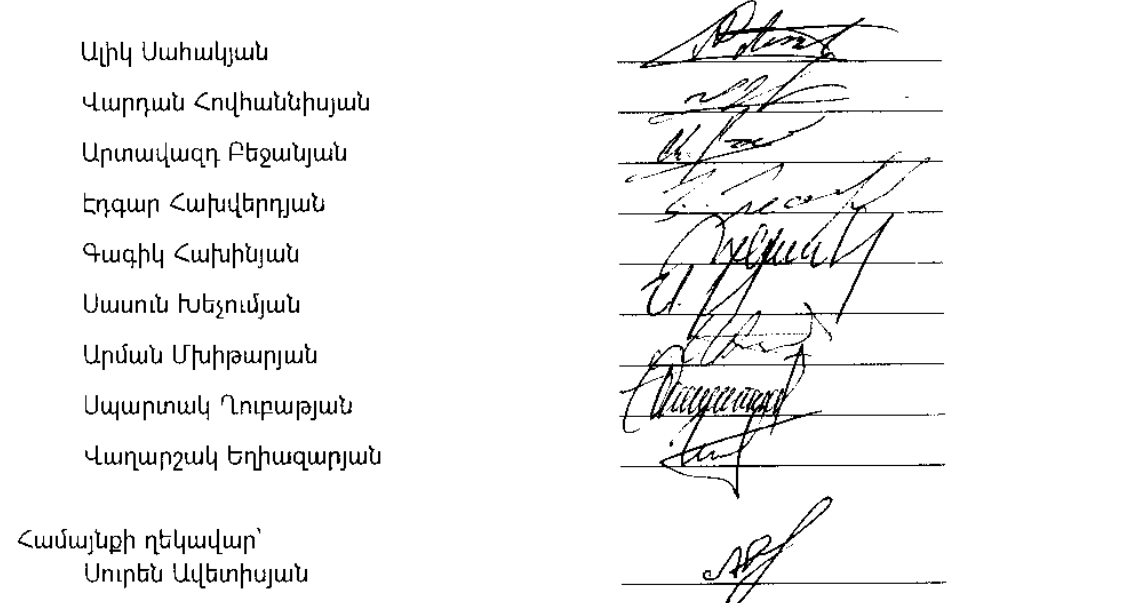 Ալիկ Սահակյան
Վարդան Հովհաննիսյան
Արտավազդ Բեջանյան
Էդգար Հախվերդյան
Գագիկ Հախինյան
Սասուն Խեչումյան
Արման Մխիթարյան
Սպարտակ Ղուբաթյան
Վաղարշակ Եղիազարյան
Համայնքի ղեկավար՝
Սուրեն Ավետիսյան